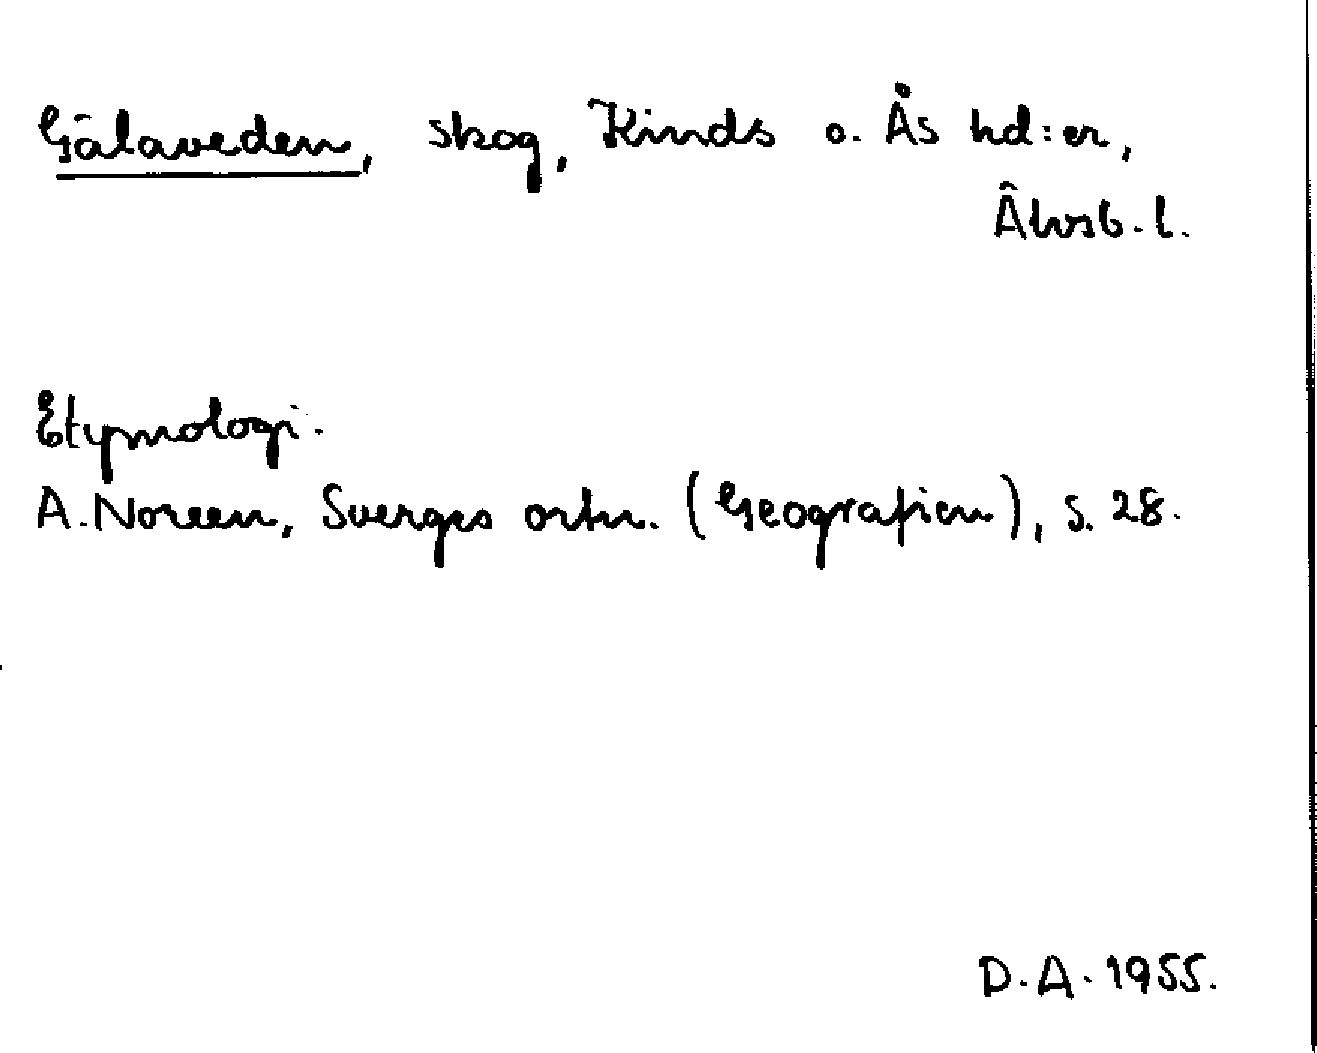 Gälaveden, skog, Kinds o. Ås hd:er,
Älvsb. l.
Etymologi.
A. Noreen, Sverges ortn. (Geografien), s. 28.
D. A. 1955.